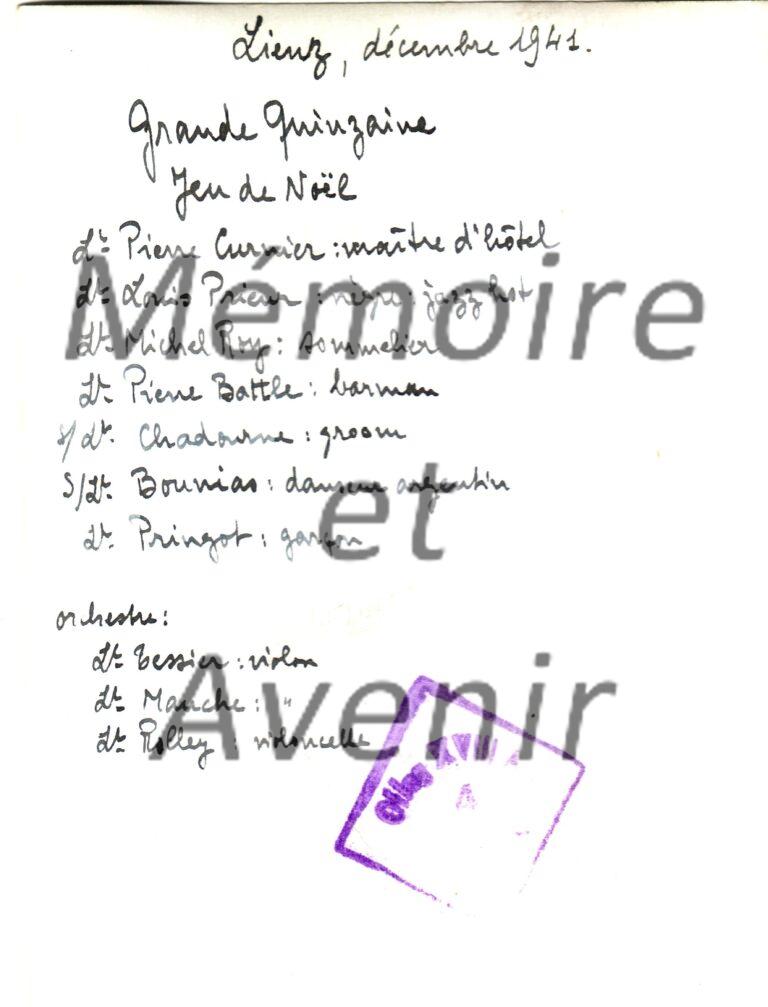 Lienz, décembre 1941.
Grande Quinzaine
Jeu de Noël
Lt Pierre Curnier : maître d'hôtel
Lt Louis Prieur : nègre jazz hot
Lt Michel Roy : sommelier
Lt Pierre Battle : barman
S/Lt. Chadourne : groom
S/Lt. Bounias : danseur argentin
Lt Pringot : garçon
orchestre :
Lt Tessier : violon
Lt Manche : "
Lt Rolley : violoncelle
Mémoire
et
Avenir
Oflag XVIII A